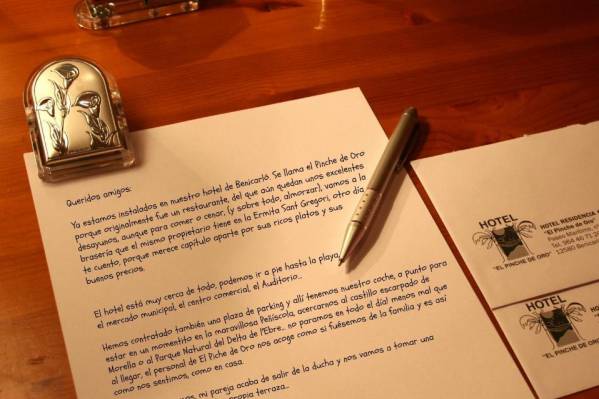 Queridos amigos:
Ya estamos instalados en nuestro hotel de Benicarló. Se llama el Pinche de Oro
porque originalmente fue un restaurante, del que aún quedan unos excelentes
desayunos, aunque para comer o cenar, (y sobre todo, almorzar), vamos a la
brasería que el mismo propietario tiene en la Ermita Sant Gregori, otro día
te cuento, porque merece capítulo aparte por sus ricos platos y sus
buenos precios.
El hotel está muy cerca de todo, podemos ir a pie hasta la playa,
el mercado municipal, el centro comercial, el Auditorio...
Hemos contratado también una plaza de parking y allí tenemos nuestro coche, a punto para
estar en un momentito en la maravillosa Peñíscola, acercarnos al castillo escarpado de
Morella o al Parque Natural del Delta de l'Ebre... no paramos en todo el día! menos mal que
al llegar, el personal de El Piche de Oro nos acoge como si fuésemos de la familia y es así
como nos sentimos, como en casa.
mi pareja acaba de salir de la ducha y nos vamos a tomar una
propia terraza...
HOTEL
"EL PINCHE DE ORO"
HOTEL RESIDENCIA
"El Pinche de Oro"
Paseo Marítimo,
Tel. 964 46 71 2
12580 Benicar
HOTEL
"EL PINCHE DE ORO"